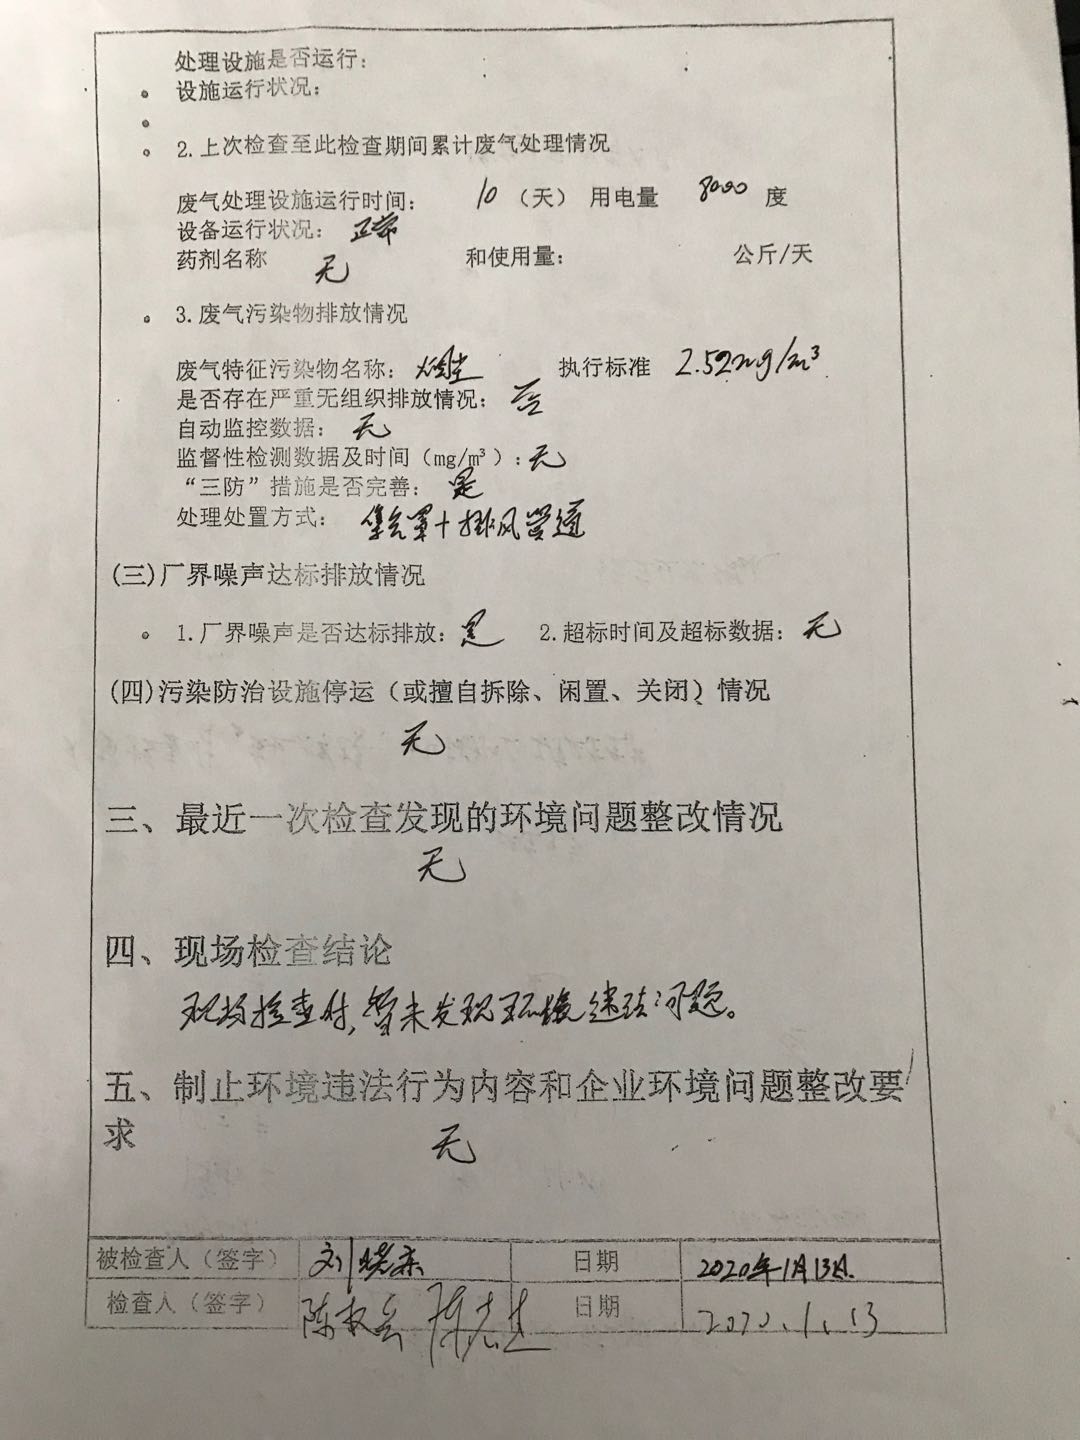 处理设施是否运行：
设施运行状况：
2.上次检查至此检查期间累计废气处理情况
废气处理设施运行时间： 10 （天） 用电量 8000 度
设备运行状况： 正常
药剂名称 无 和使用量： 公斤/天
3.废气污染物排放情况
废气特征污染物名称：烟尘 执行标准 2.52mg/m³
是否存在严重无组织排放情况：否
自动监控数据：无
监督性检测数据及时间（mg/m³）：无
“三防”措施是否完善：是
处理处置方式： 集气罩+排风管道
(三)厂界噪声达标排放情况
1.厂界噪声是否达标排放：是 2.超标时间及超标数据：无
(四)污染防治设施停运（或擅自拆除、闲置、关闭）情况
无
三、最近一次检查发现的环境问题整改情况
无
四、现场检查结论
现场检查时，暂未发现环境违法问题。
五、制止环境违法行为内容和企业环境问题整改要
求
无
被检查人（签字） 刘 日期 2020年1月13日.
检查人（签字） 陈 陈志 日期 2020.1.13